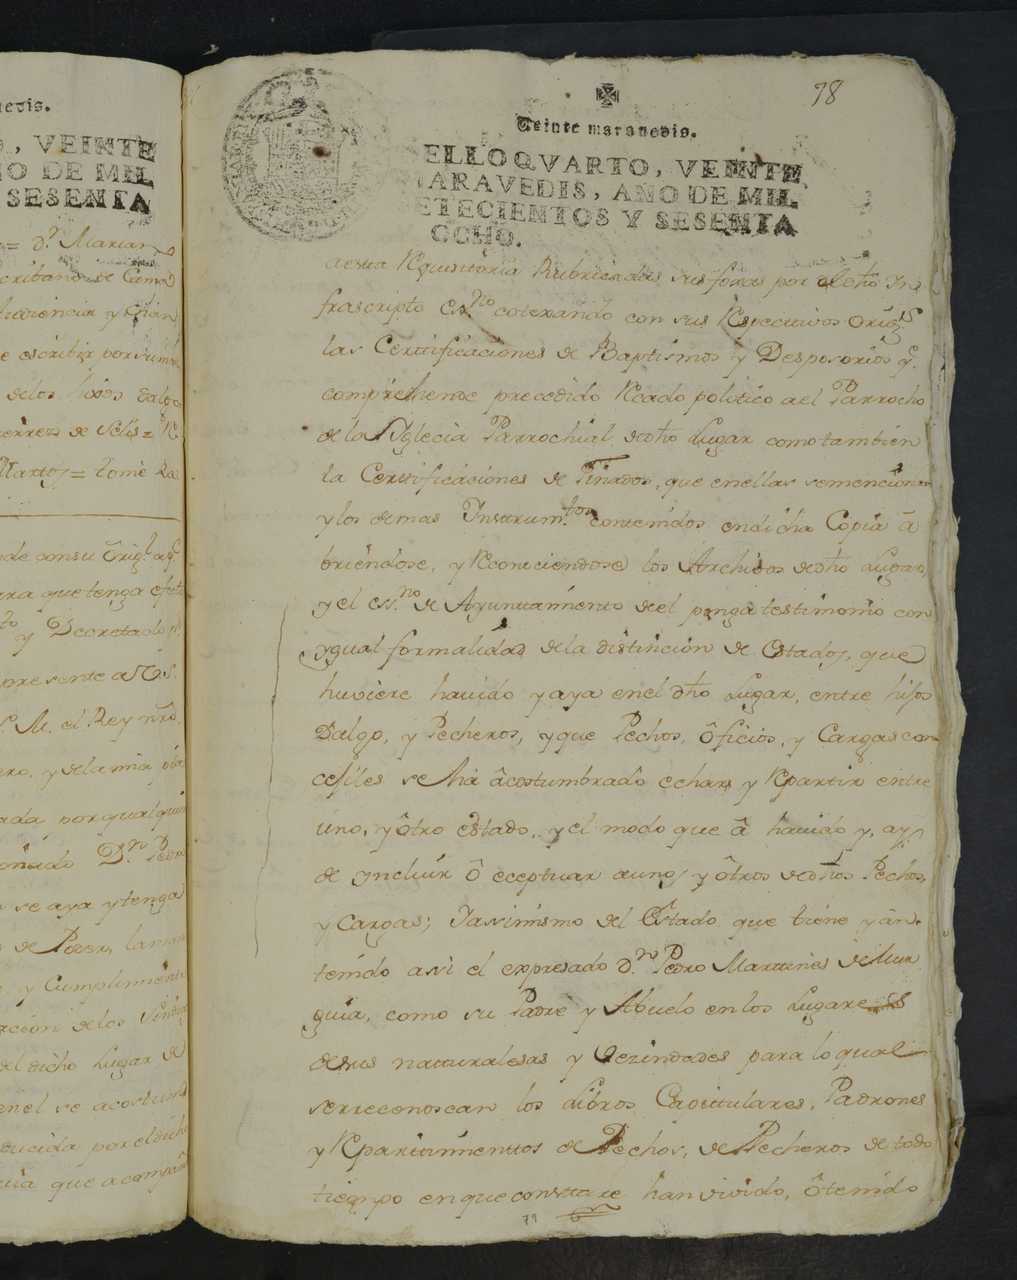 aedis.
O, VEINTE
ÑO DE MIL
SESENTA
= Dn. Marian
scribano de Cama
y Chan
e escribir por
delos hixos dalgo
errez de Selis =
Martos = tome Ra
de consu Orig.l
ara que tenga efeto
y Decretado
presente a V.S.
S. M. el Rey nrô.
ero, y dela mia
ada por qualquie
D.n Pedro
se aya y tenga
de Poder,
y Cumplimien
acion delos
el dicho Lugar de
enel se acostum
ducida por el dicho
cia que acompañ
98
Veinte maravedis.
ELLO QVARTO, VEINTE
ARAVEDIS, AÑO DE MIL
ETECIENTOS Y SESENTA
OCHO.
aesta Requisitoria Rubricadas sus foxas por el dho In
frascripto Ess.no cotexando con sus Respectivos Orig.s
las Certificaciones de Baptismos y Desposorios q.e
comprehende precedido Recado politico a el Parrocho
de la Yglecia Parrochial de dho Lugar como tambien
la Certificaciones de Finados, que enellas semencionan
y los demas Instrum.tos contenidos endicha Copia â
briendose, y Reconociendose los Archivos de dho Lugar,
y el ess.no de Ayuntamiento de el ponga testimonio con
ygual formalidad dela distincion de Estados, que
huviere havido y aya enel dho Lugar, entre hijos
Dalgo, y Pecheros, y que Pechos, ôficios, y Cargas con
cejiles se hà âcostumbrado echar y Repartir entre
uno, y ôtro estado, y el modo que â havido y, ay
de yncluir ô eceptuar aunos y ôtros de dhos Pechos,
y Cargas; Yassimismo del Estado que tiene y ân
tenido asi el expresado D.n Pedro Martines de Mur
guia, como su Padre y Abuelo en los Lugares
desus naturalesas y Vezindades para lo qual
serreconoscan los Libros Capitulares, Padrones
y Repartimientos de Pechos, de Pecheros de todo
tiempo en que constare han vivido, ô tenido
79